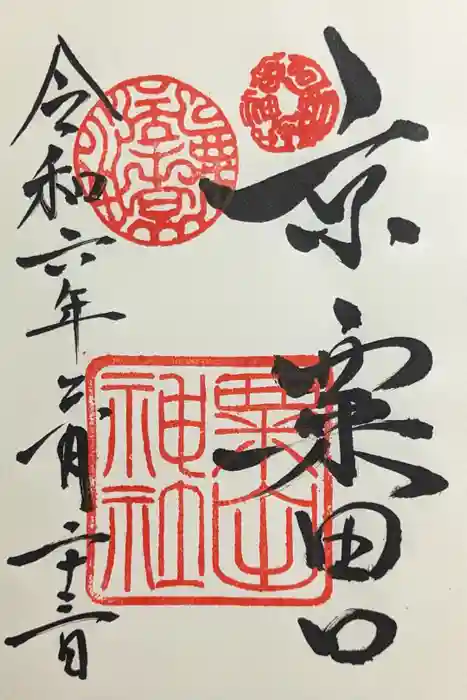 京
粟田口
粟田
神社
令和六年 月二十三日